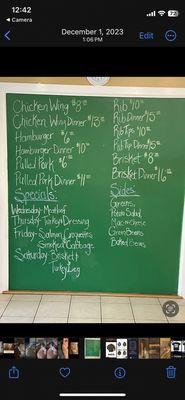 12:42
Camera
72
December 1, 2023
1:06 PM
Edit
Chicken Wing $8
Chicken Wing Dinner $13
Hamburger $6
Hamburger Dinner $10
Pulled Pork $6
Pulled Pork Dinner $11
Specials:
Wednesday - Meatloaf
Thursday - Turkey & Dressing
Friday - Salmon Croquettes
Smoked Cabbage
Saturday Brisket &
Turkey Leg
Rib $10
Rib Dinner $15
Rib Tips $10
Rib Tip Dinner $15
Brisket $8
Brisket Dinner $16
Sides:
Greens,
Potato Salad
Mac-n-Cheese
Green Beans
Baked Beans